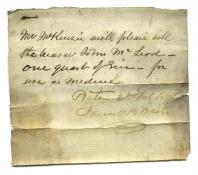 Mr McKinsie will please sell
the bearer John McLeod —
one quart of Gin — for
use as medicine